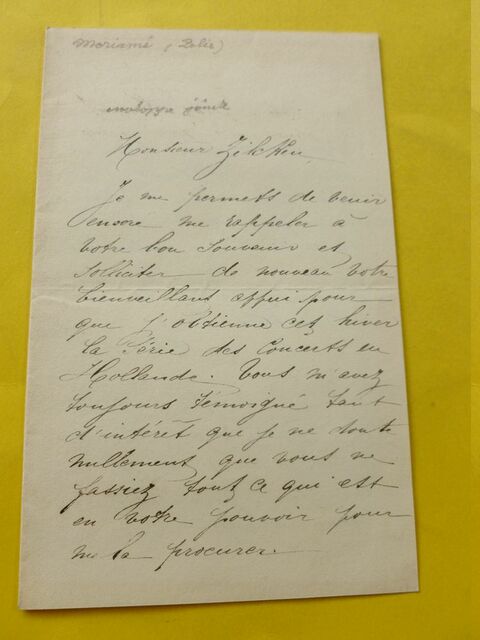 Moriamé (Zélie)
Monsieur Zilcken,
Je me permets de venir
encore me rappeler à
votre bon souvenir et
solliciter de nouveau votre
bienveillant appui pour
que j'obtienne cet hiver
la Série des Concerts en
Hollande. Vous m'avez
toujours témoigné tant
d'intérêt que je ne doute
nullement que vous ne
fassiez tout ce qui est
en votre pouvoir pour
me la procurer.